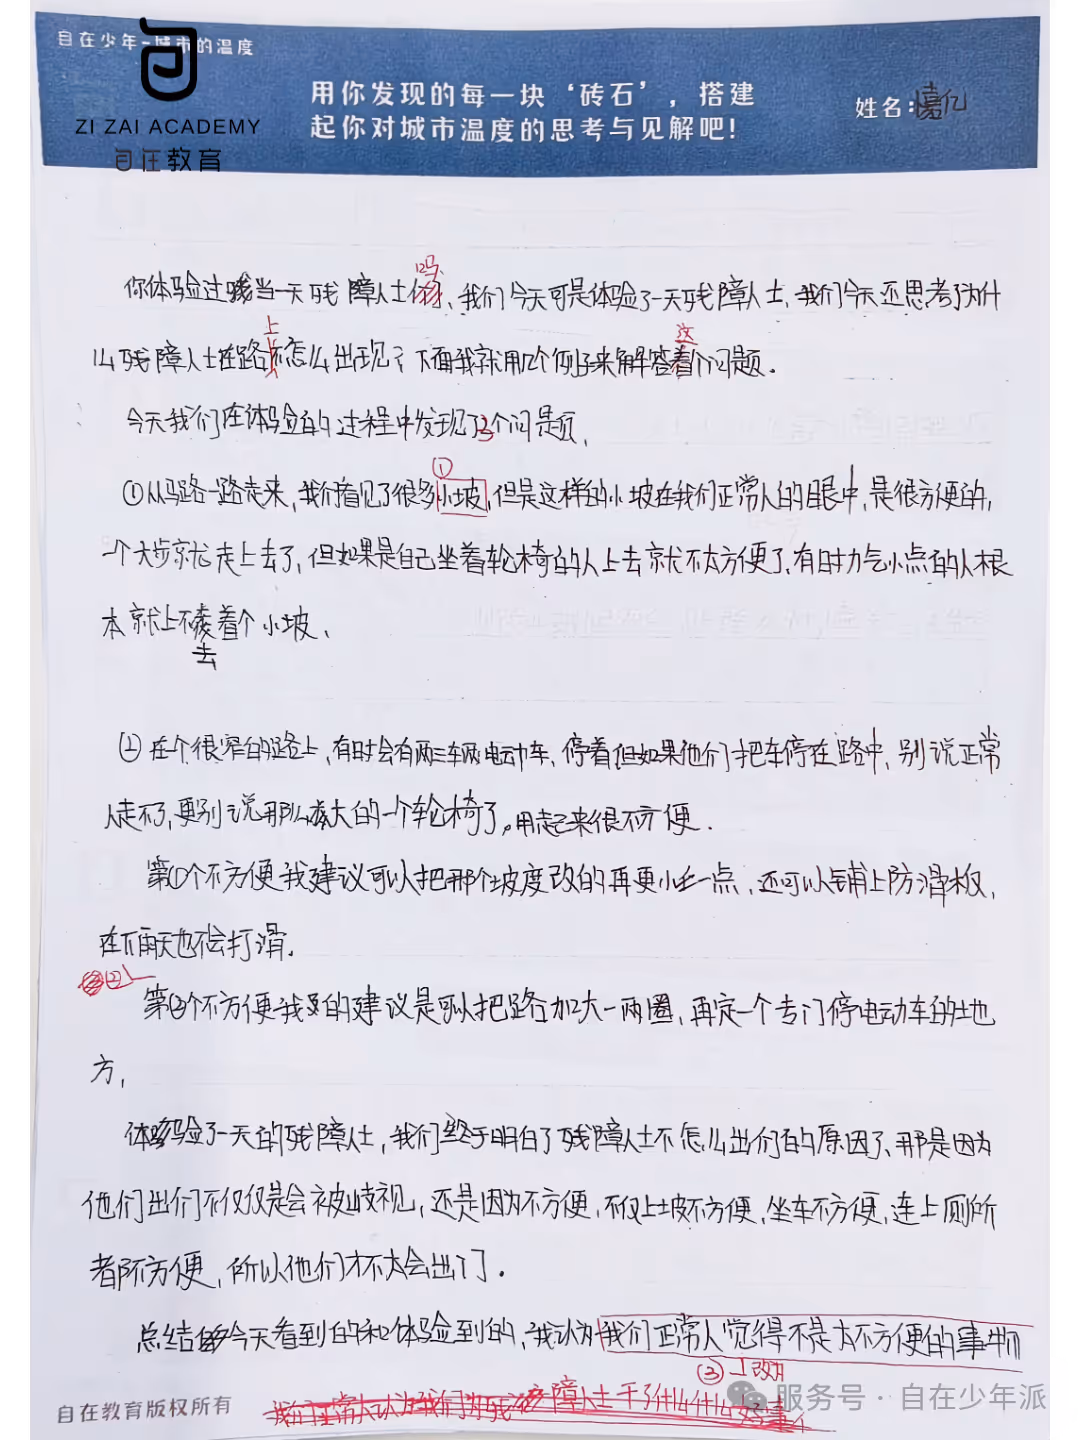 自在少年-城市的温度
ZI ZAI ACADEMY
自在教育
用你发现的每一块‘砖石’，搭建
起你对城市温度的思考与见解吧!
姓名:
吗
你体验过当一天残障人士、我们今天可是体验了一天残障人士,我们今天还思考了为什
上 这
么残障人士在路不怎么出现?下面我就用几个例子来解答着个问题。
今天我们在体验的过程中发现了2个问题、
①
①从马路一路走来,我们看见了很多小坡,但是这样的小坡在我们正常人的眼中,是很方便的,
一个大步就走上去了,但如果是自己坐着轮椅的人上去就不太方便了,有时力气小点的人根
本就上不着个小坡、
去
(2)在个很窄的路上,有时会有两三车辆电动车、停着但如果他们把车停在路中,别说正常
人走不了,更别说那么大的一个轮椅了。用起来很不方便.
第①个不方便我建议可以把那个坡度改的再更小一点,还可以铺上防滑板,
在下雨天也不会打滑.
②
第②个不方便我的建议是可以把路加大一两圈、再定一个专门停电动车的地
方,
体验了一天的残障人士,我们终于明白了残障人士不怎么出们的原因了、那是因为
他们出们不仅仅是会被歧视,还是因为不方便,不仅上坡不方便,坐车不方便,连上厕所
都不方便,所以他们才不太会出了门.
总结今天看到的和体验到的,我认为我们正常人觉得不是太不方便的事物
③
自在教育版权所有
服务号 · 自在少年派